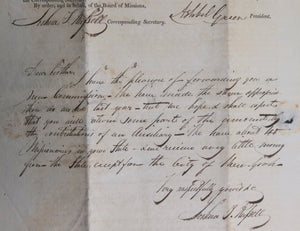 By order, and in behalf, of the Board of Missions,
Ashbel Green President,
Joshua T. Russell Corresponding Secretary.
Dear brother
I have the pleasure of forwarding you a
new Commission - We have made the same appropria
you do not last year - But we hope & shall expect
that you will raise some part of the amount in
the contributions of an Auxiliary - We have about 40
Missionaries in your State - and receive very little money
from the State except from the City of New-York
Very respectfully yours &c
Joshua T. Russell